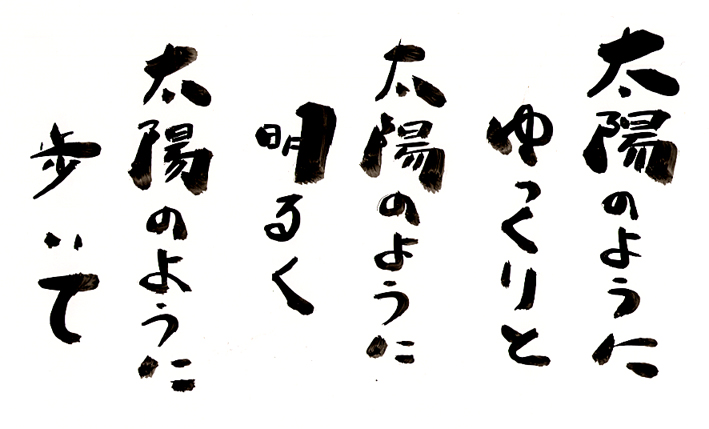 太陽のように
ゆっくりと
太陽のように
明るく
太陽のように
歩いて